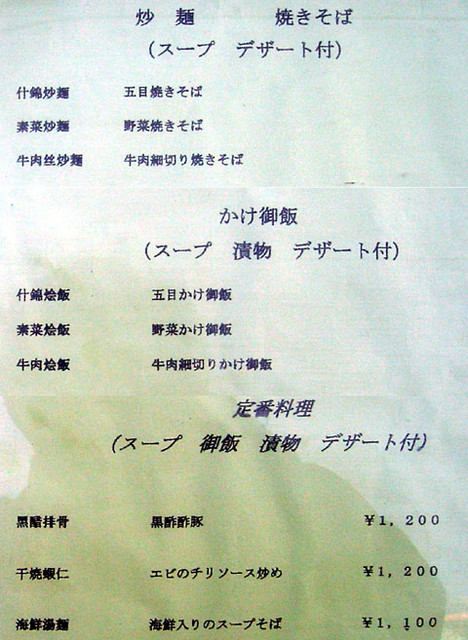 炒　麺　　　　焼きそば
（スープ　デザート付）
什錦炒麺　　五目焼きそば
素菜炒麺　　野菜焼きそば
牛肉丝炒麺　　牛肉細切り焼きそば
かけ御飯
（スープ　漬物　デザート付）
什錦烩飯　　五目かけ御飯
素菜烩飯　　野菜かけ御飯
牛肉烩飯　　牛肉細切りかけ御飯
定番料理
（スープ　御飯　漬物　デザート付）
黒醋排骨　　黒酢酢豚　　￥１，２００
干焼蝦仁　　エビのチリソース炒め　　￥１，２００
海鮮湯麺　　海鮮入りのスープそば　　￥１，１００